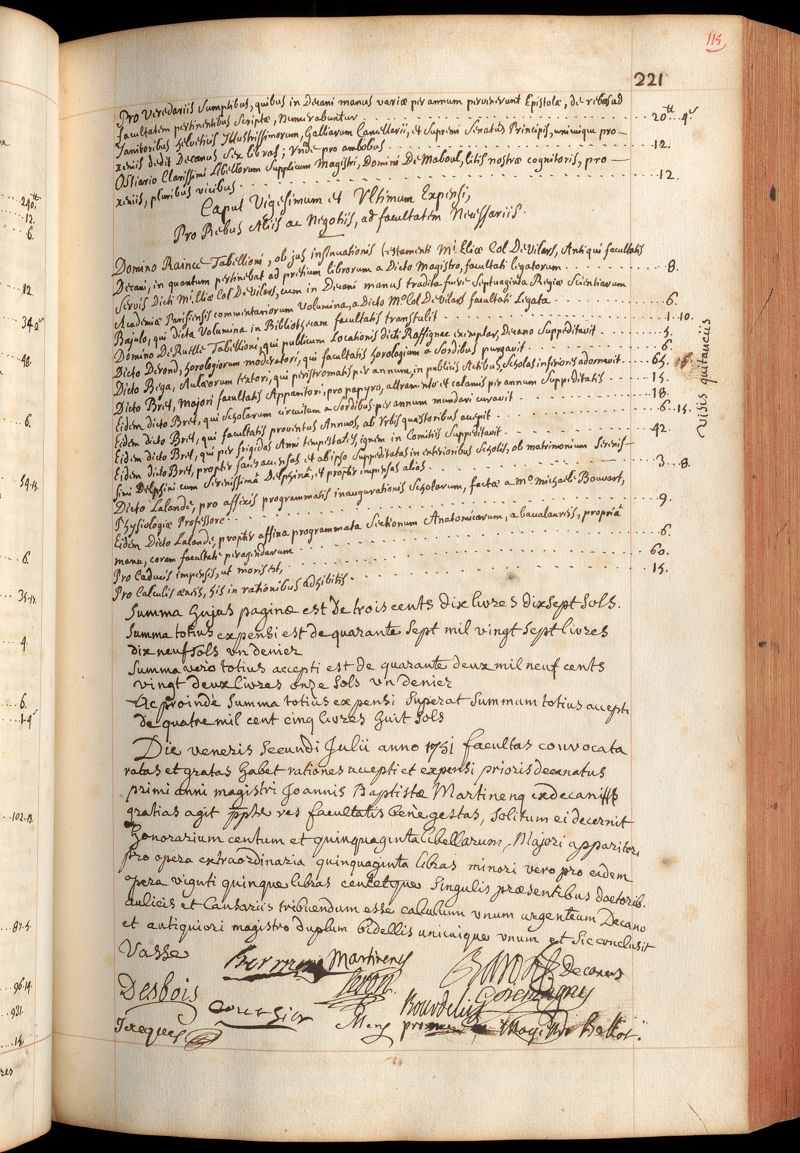 115
221
Pro Veredariis Sumptibus, quibus in Decani manus variæ per annum pervenerunt Epistolæ, de rebus ad
facultatem pertinentibus Scriptæ, Numerabuntur 20tt 4s
Janitoribus Helvetiis Illustrissimorum, Galliarum Cancellarii, et Supremi Senatus Principis, unicuique pro-
xeniis dedit Decanus Sex libras; Unde pro ambobus 12.
Ostiario Clarissimi Libellorum Supplicum Magistri, Domini De Maboul, litis nostræ cognitoris, pro-
xeniis, pluribus vicibus 12.
Caput Vigesimum et Ultimum Expensi,
Pro Rebus Aliis ac Negotiis, ad facultatem Necessariis.
Domino Raince Tabellioni, ob jus insinuationis testamenti Mi Eliæ Col De Vilars, Antiqui facultatis
Decani, in quantum pertinebat ad pretium librorum a Dicto Magistro, facultati legatorum 8.
Servis Dicti Mi Eliæ Col De Vilars, cum in Decani manus tradita fuere Septuaginta Regiæ Scientiarum
Academiæ Parisiensis commentariorum Volumina, a Dicto Mo Col De Vilars facultati Legata 6.
Bajulo, qui dicta Volumina in Bibliothecam facultatis transtulit 1. 10.
Domino De Ruelle Tabellioni, qui publicum Locationis dicti Raffignac exemplar, Decano Suppeditavit 5.
Dicto Derond, horologiorum moderatori, qui facultatis horologium a Sordibus purgavit 6.
Dicto Bega, Aulæorum textori, qui peristromatis per annum, in publicis Actibus, Scholas inferiores adornavit 65.
Dicto Bret, Majori facultatis Apparitori, pro papyro, attramento et calamis per annum Suppeditatis 15.
Eidem dicto Bret, qui Scholarum circuitum a Sordibus per annum mundari curavit 18.
Eidem dicto Bret, qui facultatis proventus Annuos, ab Urbis quæstoribus accepit 6. 15.
Eidem dicto Bret, qui per frigidas Anni tempestates, ignem in Comitiis Suppeditavit 42.
Eidem dicto Bret, propter faces accensas et ab ipso Suppeditatas in exterioribus Scholis, ob matrimonium Serenis-
simi Delphini cum Serenissimâ Delphinâ, et propter impensas alias 3. 8.
Dicto Lalande, pro affixis programmatis inaugurationis Scholarum, factæ a mo Michaele Bouvart,
Physiologiæ Professore 9.
Eidem Dicto Lalande, propter affixa programmata Sectionum Anatomicarum, a baccalaureis, propriâ
manu, coram facultate peragendarum 6.
Pro Caducis impensis, ut moris est, 60.
Pro Calculis æneis, his in rationibus adhibitis 15.
Visis quitanciis
Summa hujus paginæ est de trois cents dix livres dix sept sols.
Summa totius expensi est de quarante sept mil vingt sept livres
dix neuf sols un denier
Summa vero totius accepti est de quarante deux mil neuf cents
vingt deux livres onze sols un denier
Ac proinde Summa totius expensi Superat Summum totius accepti
de quatre mil cent cinq livres huit sols
Die veneris secundi Julii anno 1751 facultas convocata
ratas et gratas habet rationes accepti et expensi prioris decanatus
primi anni magistri Joannis Baptistæ Martinenq exdecani
gratias agit ppter res facultatis benè gestas, solitum ei decernit
honorarium centum et quinquaginta libellarum, Majori apparitori
pro opera extraordinaria quinquaginta libras minori vero pro eadem
opera viginti quinque libras censetque Singulis præsentibus doctorib.
aulicis et Causariis tribuendum esse calculum unum argenteum Decano
et antiquiori magistro duplum bidellis unicuique unum et sic conclusit
Vasse
Martinenq
Baron Decanus
Desbois
Bourdelin
Jacques